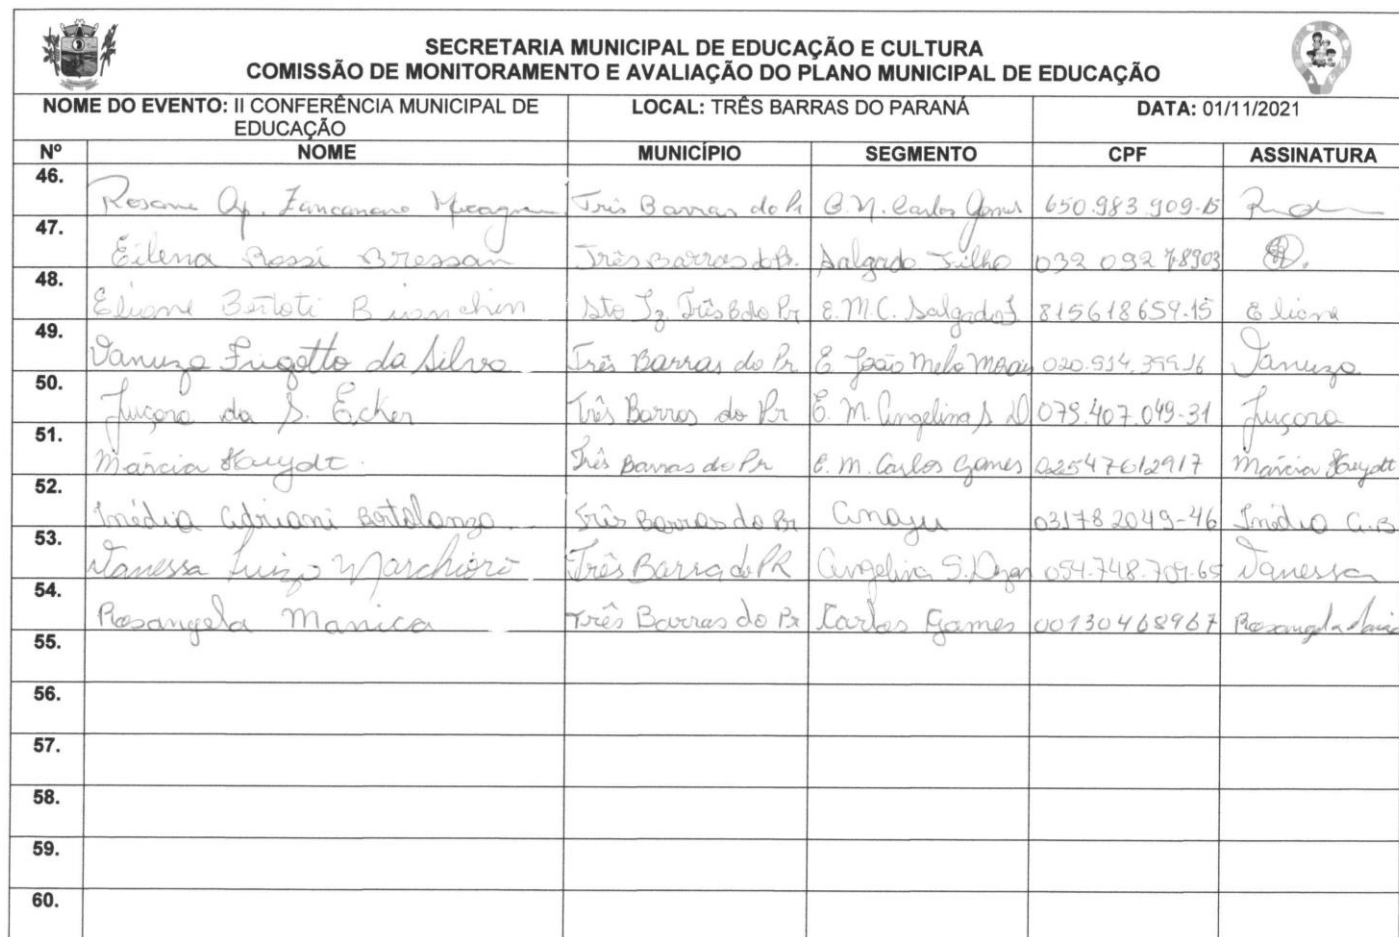 SECRETARIA MUNICIPAL DE EDUCAÇÃO E CULTURA
COMISSÃO DE MONITORAMENTO E AVALIAÇÃO DO PLANO MUNICIPAL DE EDUCAÇÃO
NOME DO EVENTO: II CONFERÊNCIA MUNICIPAL DE EDUCAÇÃO LOCAL: TRÊS BARRAS DO PARANÁ DATA: 01/11/2021
Nº NOME MUNICÍPIO SEGMENTO CPF ASSINATURA
46. Rosane Ap. Zancanaro Três Barras do Pr Carlos Gomes 650.983.909-15
47. Eilena Rossi Bressan Três Barras do Pr. Salgado Filho 032 092 78903
48. Eliane Bertoti Bianchin Sto Iz. Três B do Pr E.M.C. Salgado F 815618659-15 Eliane
49. Vanuza Frigotto da Silva Três Barras do Pr E João Melo Morais Vanuza
50. Juçara da S. Ecker Três Barras do Pr E. M. Angelina S D 079.407.049-31 Juçara
51. Márcia Haydt. Três Barras do Pr E. M. Carlos Gomes 02547612917 Márcia Haydt
52. Inédia Adriani Bortolanza Três Barras do Pr 031782049-46 Inédia A.B
53. Vanessa Luiza Marchioro Três Barra do PR Angelina S. 054.748.709-65 Vanessa
54. Rosangela Manica Três Barras do Pr Carlos Gomes 00130468967 Rosangela
55.
56.
57.
58.
59.
60.